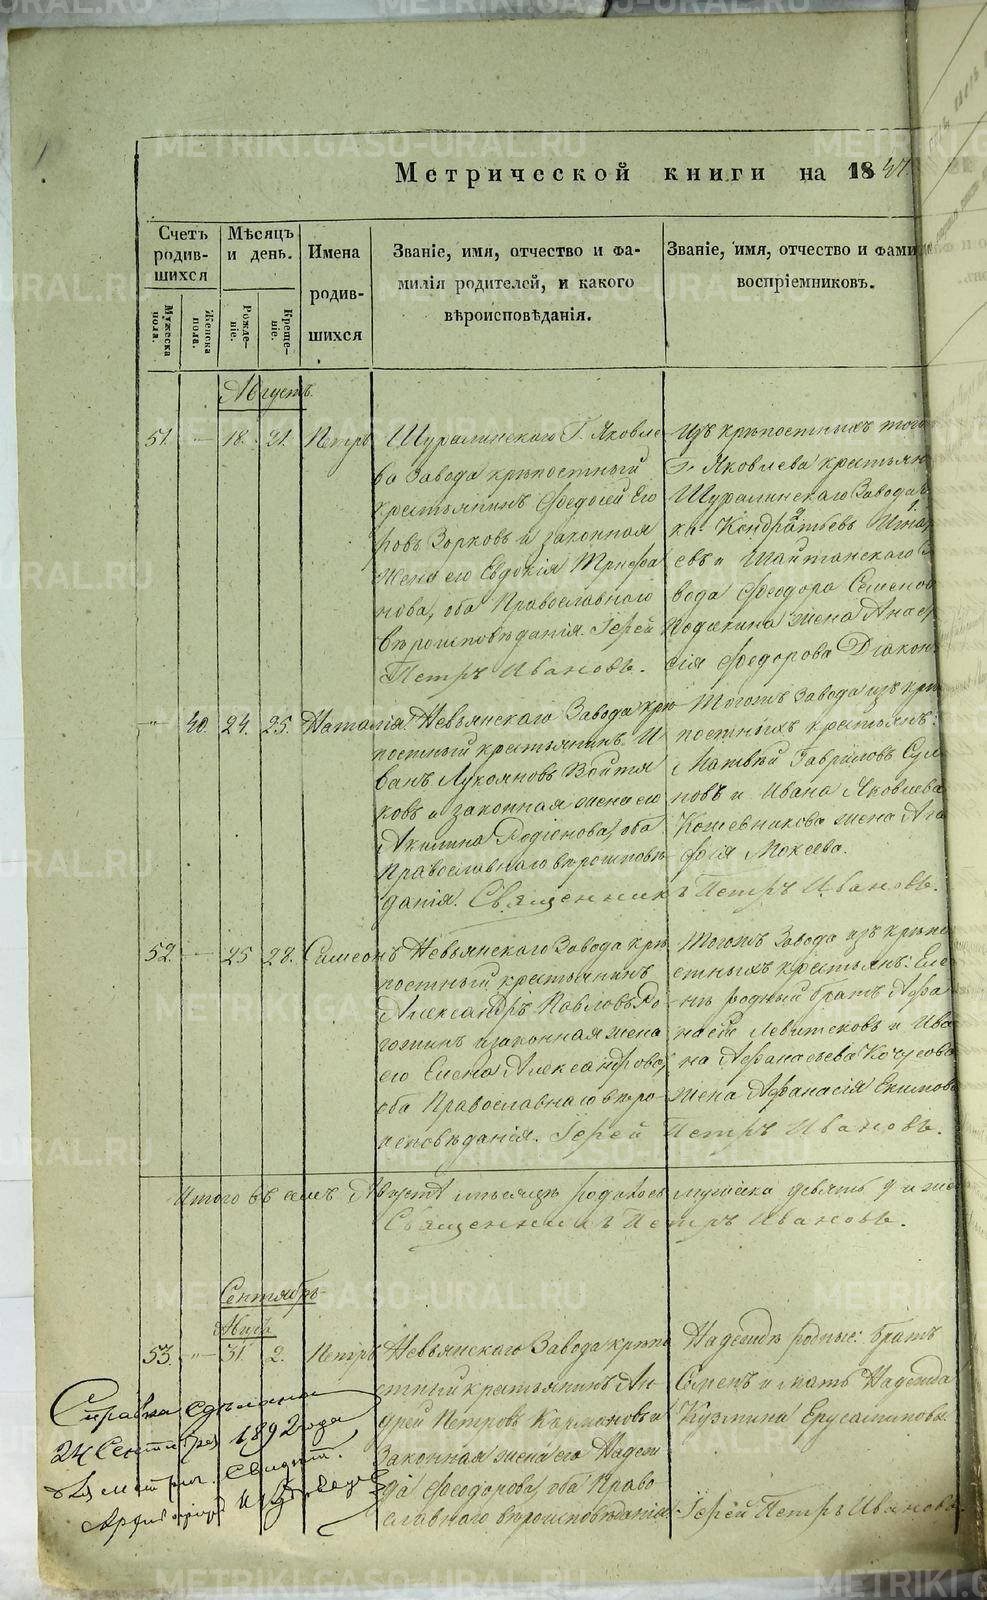 Метрической книги на 1847
Счетъ родив-шихся
Мѣсяцъ и день.
Имена родив-шихся
Званіе, имя, отчество и фа-
милія родителей, и какого
вѣроисповѣданія.
Званіе, имя, отчество и фами
воспріемниковъ.
Мужеска пола.
Женска пола.
Рожде-ніе.
Креще-ніе.
Августъ.
51. " 18. 21. Петръ
Шуралинскаго Г. Яковле-
ва Завода крѣпостный
крестьянинъ Федосей Его
ровъ Зорковъ и законная
жена его Евдокія Трифа
нова, оба Православнаго
вѣроисповѣданія. Іерей
Петръ Ивановъ.
Изъ крѣпостныхъ того
Г. Яковлева крестьян
Шуралинскаго Завода
Кондратьевъ
евъ и Шайтанскаго
вода Феодора Семенов
жена Анас
сія Федорова Діакон
" 40. 24. 25. Наталія.
Невьянскаго Завода крѣ
постный крестьянинъ И
ванъ Лукояновъ Войтя
ковъ и законная жена его
Акилина Родіонова, оба
Православнаго вѣроисповѣ
данія. Священникъ Петръ Ивановъ.
Тогожъ Завода изъ крѣ
постныхъ крестьянъ:
Матвѣй Гавриловъ Сул
новъ и Ивана Яковлева
Кожевникова жена Ага
фія Мокеева.
52. " 25 28. Симеонъ
Невьянскаго Завода крѣ
постный крестьянинъ
Александръ Павловъ Ро
гожинъ и законная жена
его Елена Александрова,
оба Православнаго вѣро-
исповѣданія. Іерей Петръ Ивановъ.
Тогожъ Завода изъ крѣпо
стныхъ крестьянъ: Еле
нѣ родный братъ Афа
насій Левитсковъ и Ива
на Афанасьева
жена Афанасія Екимова
Итого въ семъ Августѣ мѣсяцѣ родилось мужеска девять 9 и же
Священникъ Петръ Ивановъ.
Сентябрь
Авгу.
53. " 31 2. Петръ
Невьянскаго Завода крѣпо
стный крестьянинъ Ан
дрей Петровъ Кармановъ и
законная жена его Надеж
да Феодорова, оба Право
славнаго вѣроисповѣданія.
Надеждѣ родные: братъ
Семенъ и мать Надежда
Кузмина Ерусалимовы.
Іерей Петръ Ивановъ.
Справка сдѣлана
24 Сентября 1892 года
для метрич. Свидѣт.